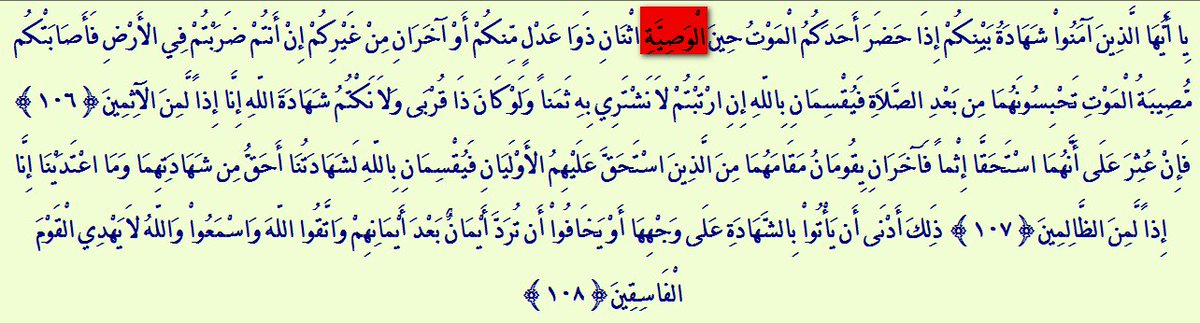 يَا أَيُّهَا الَّذِينَ آمَنُواْ شَهَادَةُ بَيْنِكُمْ إِذَا حَضَرَ أَحَدَكُمُ الْمَوْتُ حِينَ الْوَصِيَّةِ اثْنَانِ ذَوَا عَدْلٍ مِّنكُمْ أَوْ آخَرَانِ مِنْ غَيْرِكُمْ إِنْ أَنتُمْ ضَرَبْتُمْ فِي الأَرْضِ فَأَصَابَتْكُم
مُّصِيبَةُ الْمَوْتِ تَحْبِسُونَهُمَا مِن بَعْدِ الصَّلاَةِ فَيُقْسِمَانِ بِاللّهِ إِنِ ارْتَبْتُمْ لاَ نَشْتَرِي بِهِ ثَمَناً وَلَوْ كَانَ ذَا قُرْبَى وَلاَ نَكْتُمُ شَهَادَةَ اللّهِ إِنَّا إِذاً لَّمِنَ الآثِمِينَ ﴿١٠٦﴾
فَإِنْ عُثِرَ عَلَى أَنَّهُمَا اسْتَحَقَّا إِثْماً فَآخَرَانِ يِقُومَانُ مَقَامَهُمَا مِنَ الَّذِينَ اسْتَحَقَّ عَلَيْهِمُ الأَوْلَيَانِ فَيُقْسِمَانِ بِاللّهِ لَشَهَادَتُنَا أَحَقُّ مِن شَهَادَتِهِمَا وَمَا اعْتَدَيْنَا إِنَّا
إِذاً لَّمِنَ الظَّالِمِينَ ﴿١٠٧﴾ ذَلِكَ أَدْنَى أَن يَأْتُواْ بِالشَّهَادَةِ عَلَى وَجْهِهَا أَوْ يَخَافُواْ أَن تُرَدَّ أَيْمَانٌ بَعْدَ أَيْمَانِهِمْ وَاتَّقُوا اللّهَ وَاسْمَعُواْ وَاللّهُ لاَ يَهْدِي الْقَوْمَ
الْفَاسِقِينَ ﴿١٠٨﴾